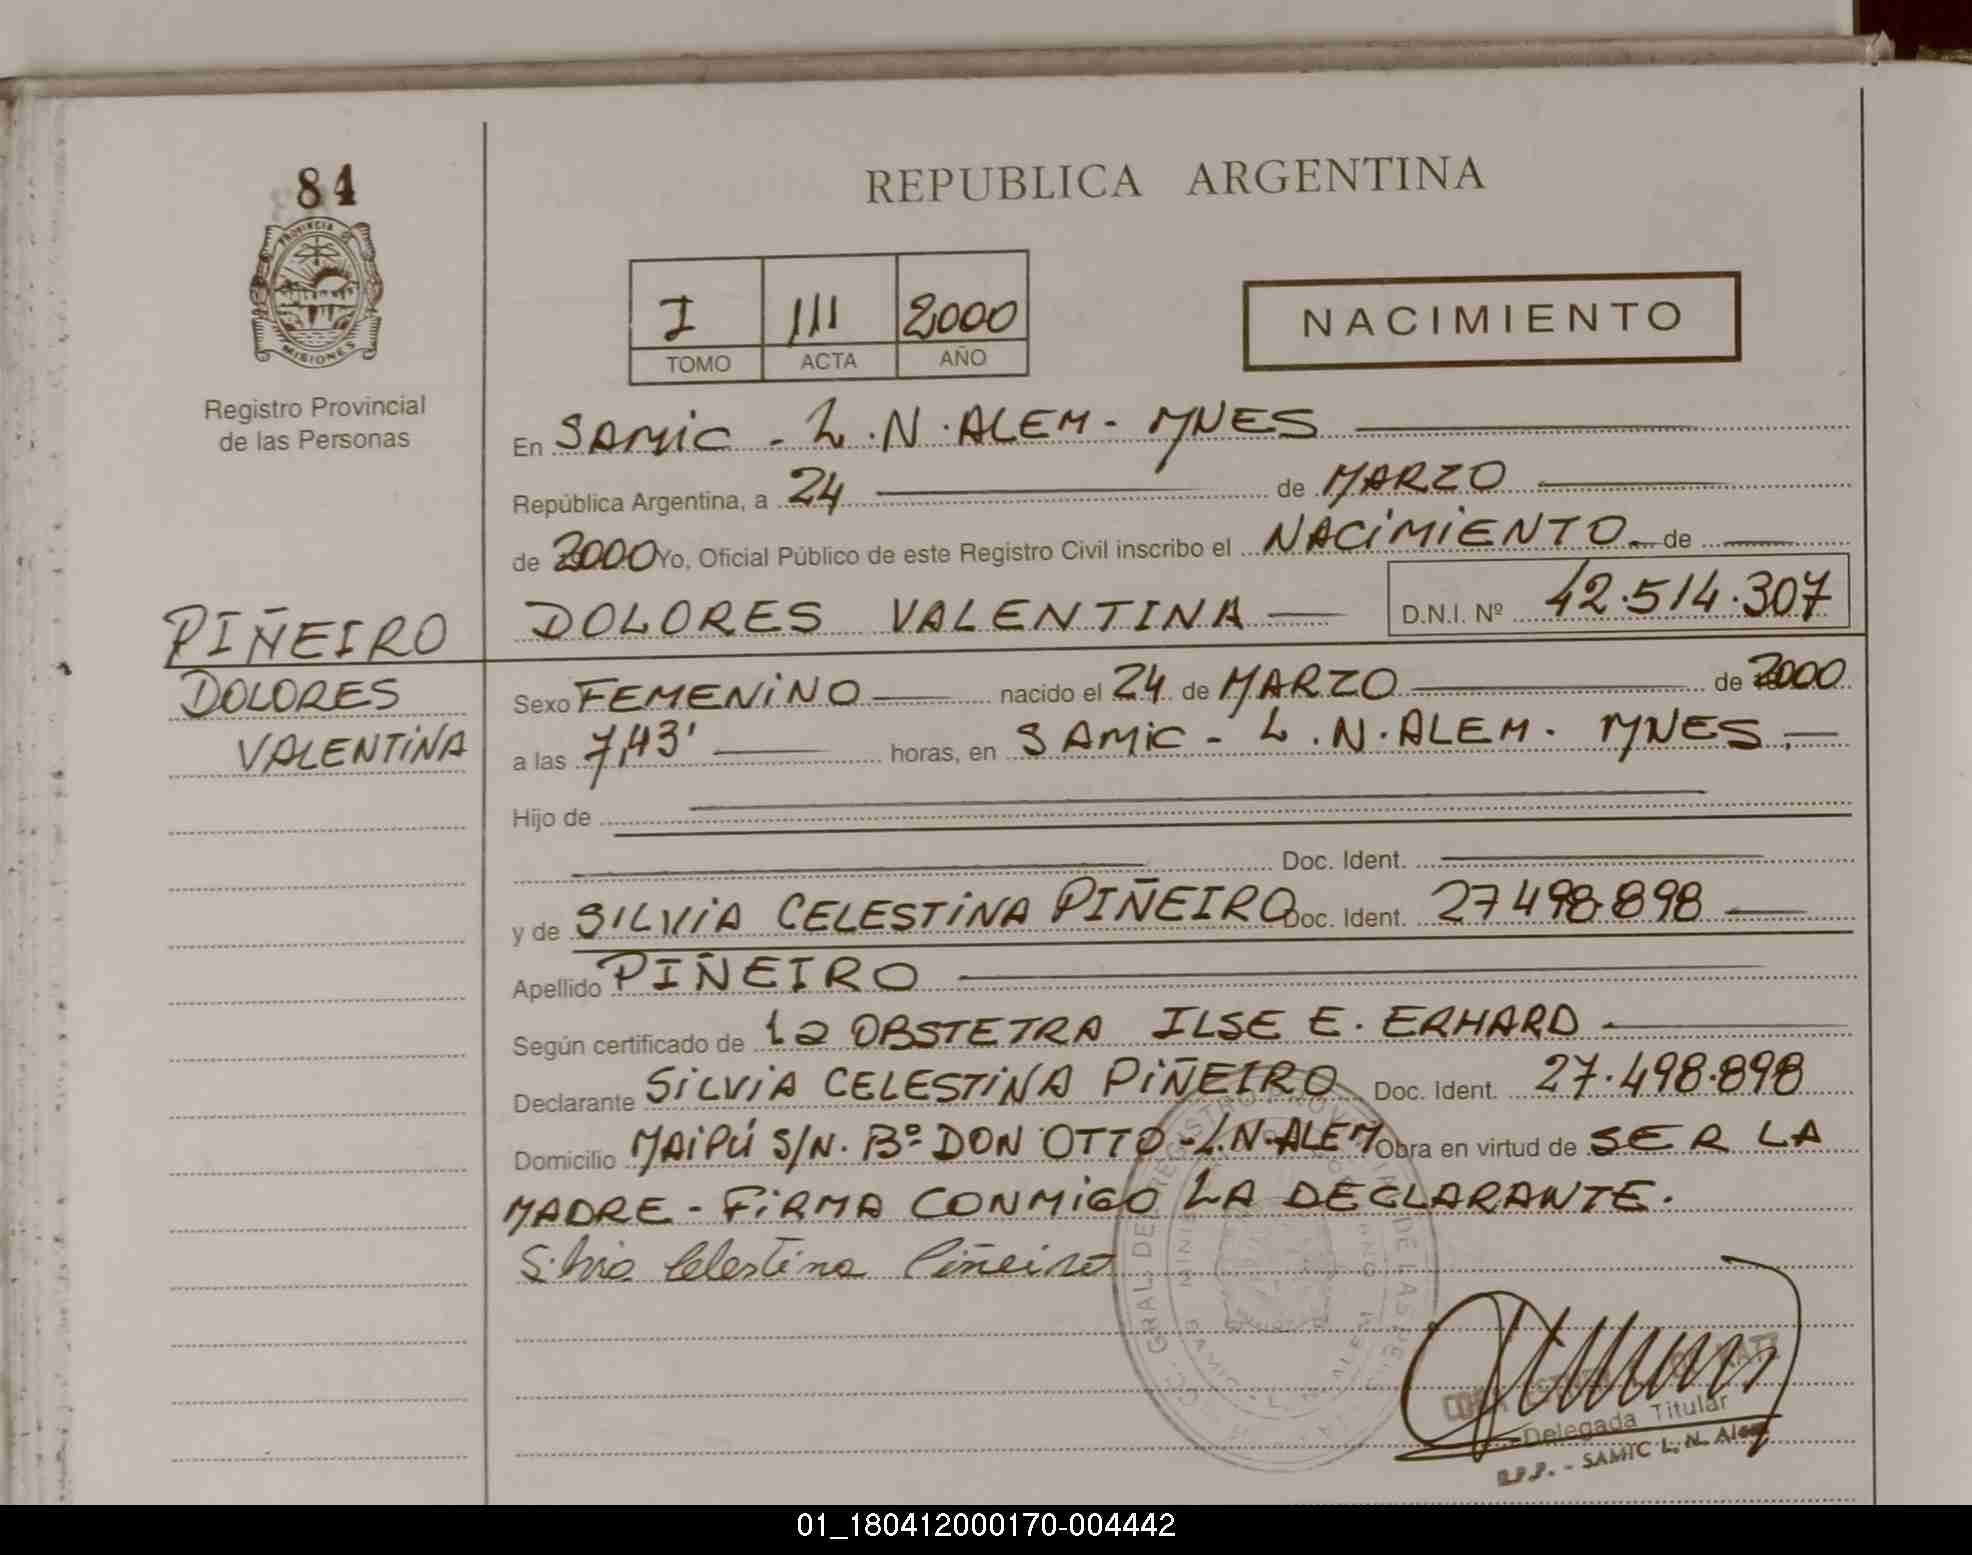 84
REPUBLICA ARGENTINA
PROVINCIA DE
MISIONES
Registro Provincial
de las Personas
I 111 2000
TOMO ACTA AÑO
NACIMIENTO
En SAMIC - L.N. ALEM - MNES
República Argentina, a 24 de MARZO
de 2000 Yo, Oficial Público de este Registro Civil inscribo el NACIMIENTO de
DOLORES VALENTINA D.N.I. Nº 42.514.307
PIÑEIRO
DOLORES
VALENTINA
Sexo FEMENINO nacido el 24 de MARZO de 2000
a las 7,43' horas, en SAMIC - L.N. ALEM. MNES.
Hijo de
Doc. Ident.
y de SILVIA CELESTINA PIÑEIRO Doc. Ident. 27498.898
Apellido PIÑEIRO
Según certificado de la OBSTETRA ILSE E. ERHARD
Declarante SILVIA CELESTINA PIÑEIRO Doc. Ident. 27.498.898
Domicilio MAIPÚ S/N. Bº DON OTTO - L.N. ALEM Obra en virtud de SER LA
MADRE - FIRMA CONMIGO LA DECLARANTE.
Silvia Celestina Piñeiro
Delegada Titular
R.P.P. - SAMIC L. N. Alem
01_180412000170-004442